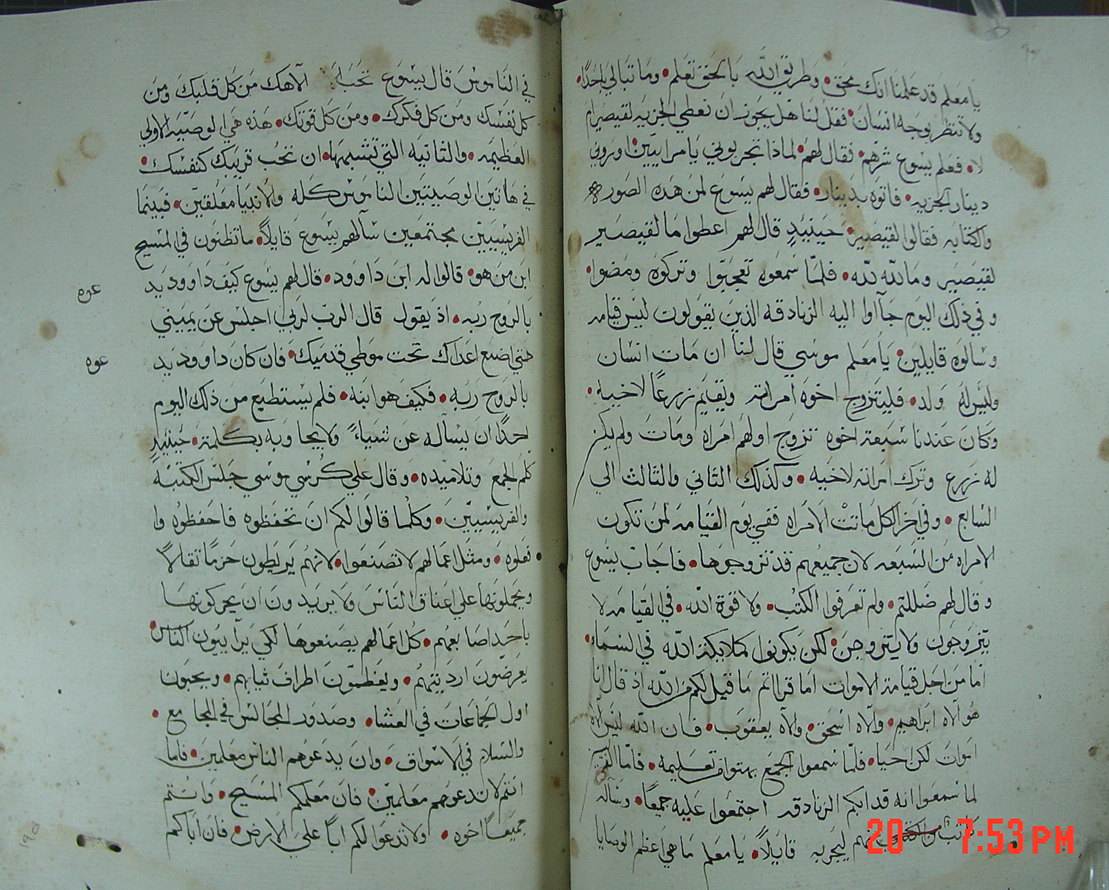 يا معلم قد علمنا انك محق • وطريق الله بالحق تعلم • وما تبالي باحدا •
ولا تنظر بوجه انسان • فقل لنا هل يجوز ان نعطي الجزيه لقيصر ام
لا • فعلم يسوع شرهم • فقال لهم • لماذا تجربوني يا مراييين • اوروني
دينار الجزيه • فاتوه بدينار • فقال لهم يسوع لمن هده الصوره
والكتابه فقالوا لقيصر • حينيدٍ قال لهم اعطوا ما لقيصر
لقيصر وما لله لله • فلما سمعوه تعجبوا وتركوه ومضوا •
وفي ذلك اليوم جآاوا اليه الزنادقه الدين يقولون ليس قيامه
وسالوه قايلين • يا معلم موسي قال لنا ان مات انسان
وليس له ولد • فليتزوج اخوه امراته ويقيم زرعًا لاخيه •
وكان عندنا سبعة اخوه تزوج اولهم امراه ومات ولم يكن
له زرع وترك امراته لاخيه • وكذلك الثاني والثالث الي
السابع • وفي اخر الكل ماتت الامراه ففي يوم القيامه لمن تكون
الامراه من السبعه لان جميعهم قد تزوجوها • فاجاب يسوع
وقال لهم ضللتم • ولم تعرفوا الكتب • ولا قوة الله • في القيامه لا
يتزوجون ولا يتزوجن • لكن يكونوا كملايكة الله في السماء •
اما من اجل قيامة الاموات اما قراتم ما قيل لكم من الله اذ قال انا
هو آلاه ابراهيم • والاه اسحق • والاه يعقوب • فان الله ليس الاه
اموات لكن احيا • فلما سمعوا الجمع بهتوا من تعليمه • فاما
لما سمعوا انه قد ابكم الزنادقه اجتمعوا عليه جميعًا • وساله
كاتب منهم ليجربه قايلًا • يا معلم ما هي اعظم الوصايا
في الناموس قال يسوع تحب الآهك من كل قلبك ومن
كل نفسك ومن كل فكرك • ومن كل قوتك • هذه هي الوصيه الاولي
العظيمه • والثانيه التي تشبهها • ان تحب قريبك كنفسك •
في هاتين الوصيتين الناموس كله والانبيا معلقين • فبينما
الفريسيين مجتمعين سآلهم يسوع قايلًا • ما تظنون في المسيح
ابن من هو • قالوا له ابن داوود • قال لهم يسوع كيف داوود يد
عوه
بالروح ربه • اذ يقول قال الرب لربي اجلس عن يميني
حتي اضع اعداك تحت موطي قدميك • فان كان داوود يد
عوه
بالروح ربه • فكيف هو ابنه • فلم يستطيع من ذلك اليوم
احدًا ان يساله عن شياءً ولا يجاوبه بكلمة • حينيدٍ
كلم الجمع وتلاميده • وقال علي كرسي موسي جلس الكتبه
والفريسيين • وكلما قالوا لكم ان تحفظوه فاحفظوه وا
فعلوه • ومثل اعمالهم لا تصنعوا • لانهم يربطون حزمًا ثقالًا
ويحملونها علي اعناق الناس ولا يريدون ان يحركونها
باحد اصابعهم • كل اعمالهم يصنعوها لكي يرآييون الناس •
يعرضون ارديتهم • ويعظمون اطراف ثيابهم • ويحبون
اول الجماعات في العشا • وصدور المجالس في المجامع •
والسلام في الاسواق • وان يدعوهم الناس معلمين • فاما
انتم لا تدعوهم معلمين • فان معلمكم المسيح • وانتم
جميعًا اخوه • ولا تدعوا لكم ابًا علي الارض • فان اباكم
20 7:53 PM